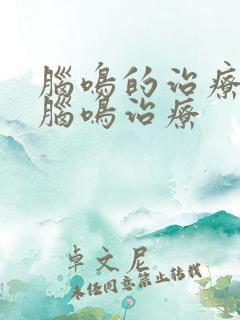 腦鳴的治療
腦鳴治療
卓文尼
未經同意禁止轉載